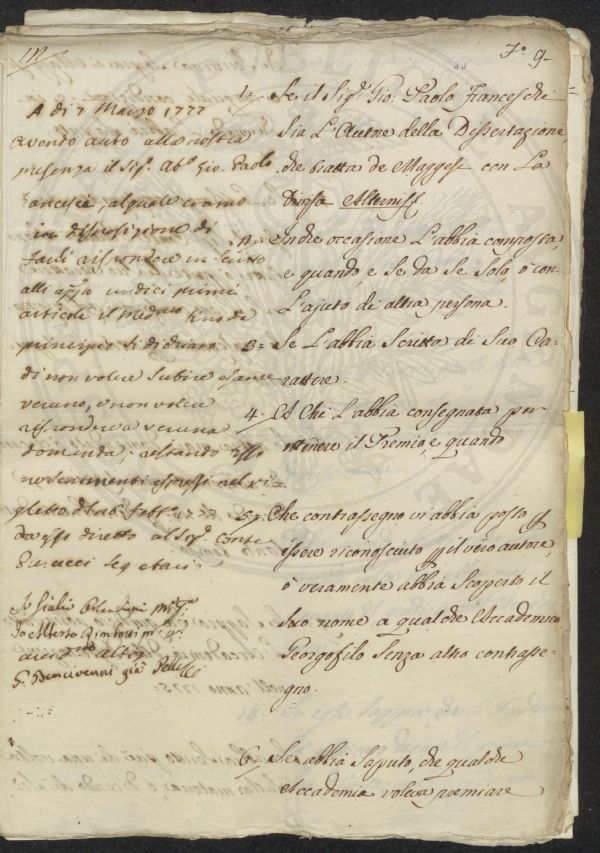 111
F.º 9.
A dì 7 Marzo 1777
Avendo auto alla nostra
presenza il Sig.r Ab.e Gio. Paolo
Francesci, al quale eramo
in disposizione di
farli rispondere in scritto
alli app.o undici primi
articoli il med.mo fino da
principio si dichiarò
di non volere subire esame
veruno, e non volere
rispondere a veruna
domanda, restando
nei sentimenti espressi nel vi-
glietto
diretto al Sig.r Conte
Segretario
Io Giulio
Io Alberto Rimbotti
G. Bencivenni già Pelli
1. Se il Sig.r Gio. Paolo Franceschi
sia L'Autore della Dissertazione,
che tratta de Maggesi con La
Divisa
2. In che occasione L'abbia composta,
e quando, e se da se solo, ò con
L'ajuto di altra persona.
3= Se L'abbia scritta di suo Ca-
rattere.
4. A Chi L'abbia consegnata per
ottenere il Premio, e quando
5= Che contrassegno vi abbia posto p
essere riconosciuto p il vero autore,
ò veramente abbia scoperto il
suo nome a qualche Accademico
Georgofilo senza altro contrasse-
gno.
6. Se abbia saputo, che qualche
Accademia voleva premiare